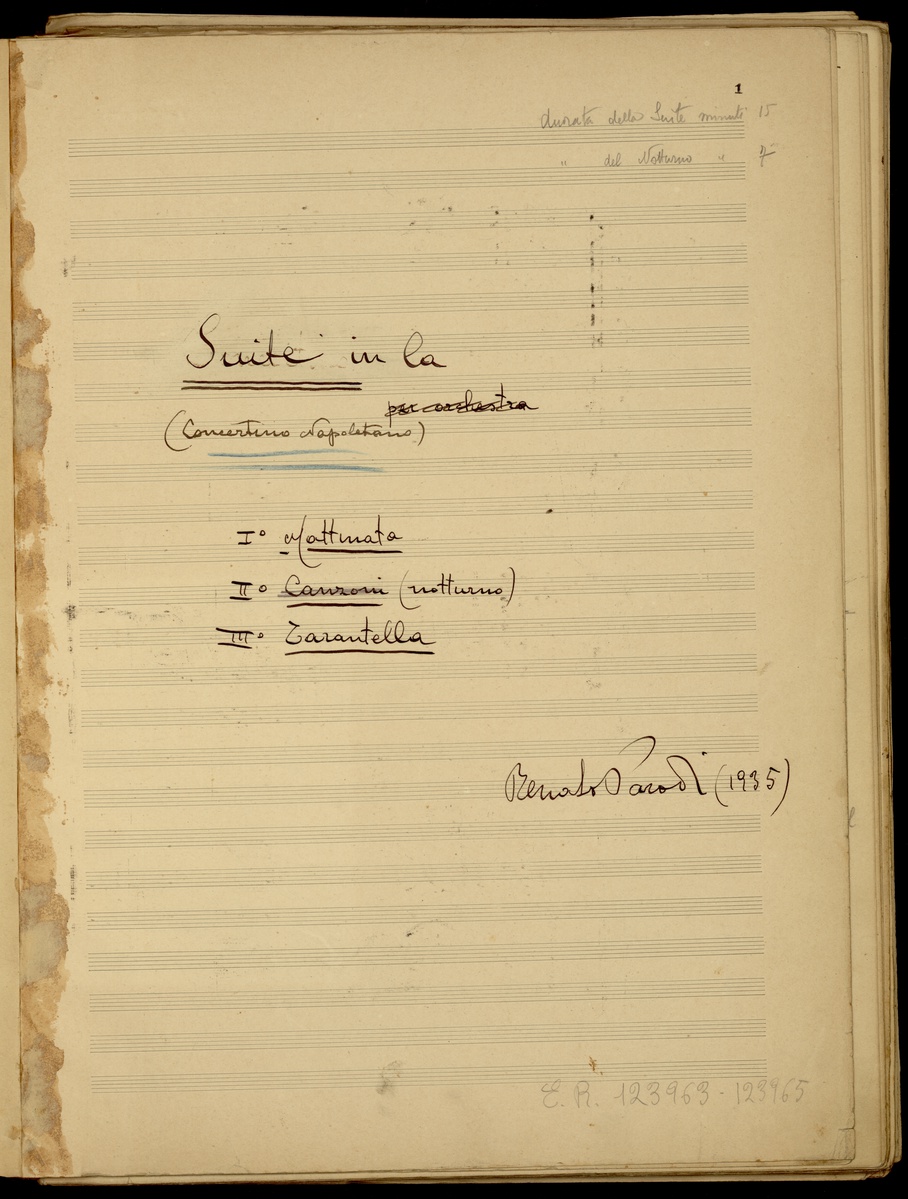 1
durata della Suite minuti 15
" del Notturno " 7
Suite in la
per orchestra
(Concertino Napoletano)
I° Mattinata
II° Canzoni (notturno)
III° Tarantella
Renato Parodi (1935)
E. R. 123963 - 123965